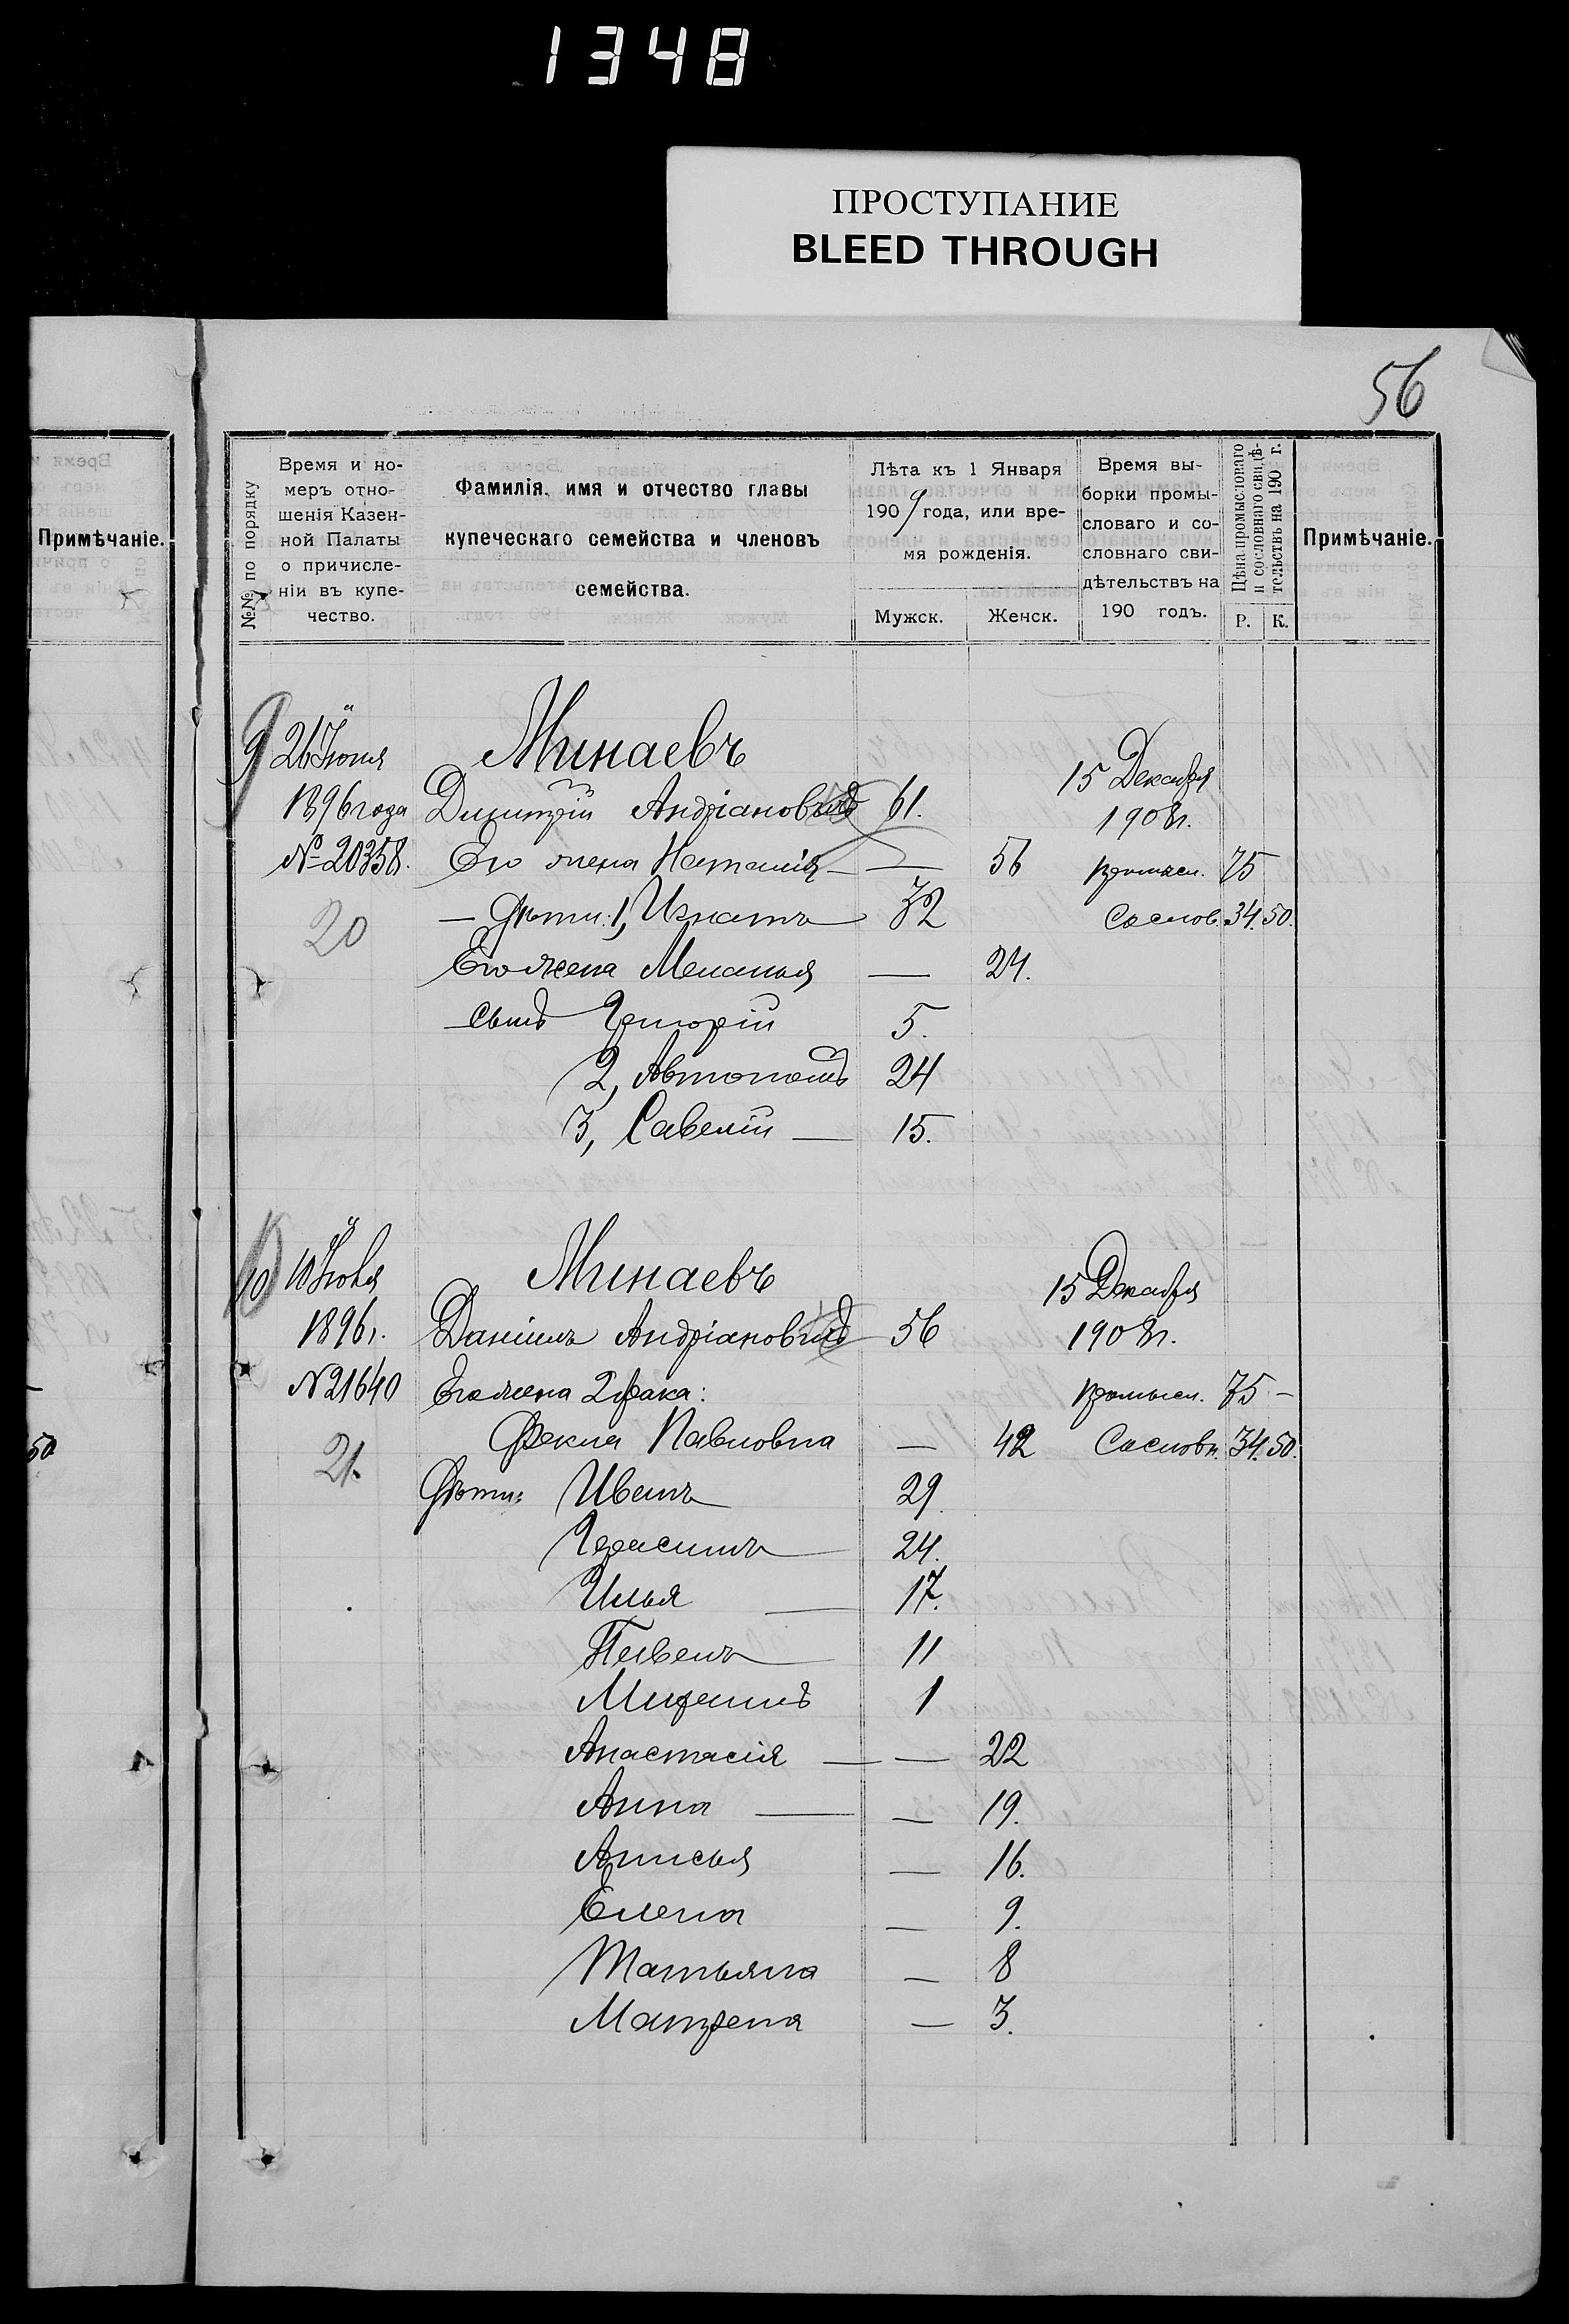 1348
ПРОСТУПАНИЕ
BLEED THROUGH
56
Примѣчаніе.
№№ по порядку
Время и но-
меръ отно-
шенія Казен-
ной Палаты
о причисле-
ніи въ купе-
чество.
Фамилія, имя и отчество главы
купеческаго семейства и членовъ
семейства.
Лѣта къ 1 Января
1909 года, или вре-
мя рожденія.
Мужск. Женск.
Время вы-
борки промы-
словаго и со-
словнаго сви-
дѣтельствъ на
190 годъ.
Цѣна промысловаго
и сословнаго свидѣ-
тельствъ на 190 г.
Р. К.
Примѣчаніе.
9 26 Іюня Минаевъ 15 Декабря
1896 года Дмитрій Андріановичъ 61. 1908 г.
№ 20358. Его жена Наталія — — 56 промысл. 75
20 — Дѣти: 1, Игнатъ 32 Сослов. 34. 50.
Его жена Меланья — 24.
сынъ Григорій 5.
2, Автономъ 24
3, Савелій — 15.
10 10 Іюня Минаевъ 15 Декабря
1896 г. Даніилъ Андріановичъ 56 1908 г.
№ 21640 Его жена 2 брака: промысл. 75 —
50
21. Фекла Павловна — 42 Сословн. 34. 50.
Дѣти: Иванъ 29.
Герасимъ 24.
Илья — 17.
Павелъ 11
Михаилъ 1
Анастасія — — 22
Анна — — 19.
Анисья — 16.
Елена — 9.
Татьяна — 8
Матрена — 3.